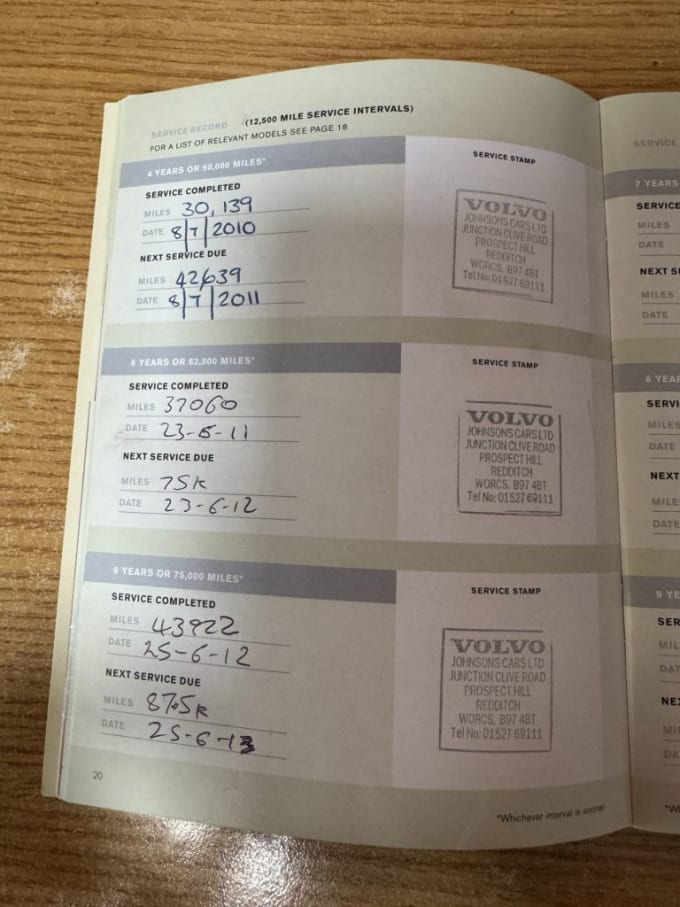 SERVICE RECORD (12,500 MILE SERVICE INTERVALS)
FOR A LIST OF RELEVANT MODELS SEE PAGE 18
4 YEARS OR 50,000 MILES*
SERVICE COMPLETED
MILES 30,139
DATE 8/7/2010
NEXT SERVICE DUE
MILES 42639
DATE 8/7/2011
SERVICE STAMP
VOLVO
JOHNSONS CARS LTD
JUNCTION CLIVE ROAD
PROSPECT HILL
REDDITCH
WORCS. B97 4BT
Tel No: 01527 69111
5 YEARS OR 62,500 MILES*
SERVICE COMPLETED
MILES 37060
DATE 23-6-11
NEXT SERVICE DUE
MILES 75K
DATE 23-6-12
SERVICE STAMP
VOLVO
JOHNSONS CARS LTD
JUNCTION CLIVE ROAD
PROSPECT HILL
REDDITCH
WORCS. B97 4BT
Tel No: 01527 69111
6 YEARS OR 75,000 MILES*
SERVICE COMPLETED
MILES 43922
DATE 25-6-12
NEXT SERVICE DUE
MILES 87.5K
DATE 25-6-13
SERVICE STAMP
VOLVO
JOHNSONS CARS LTD
JUNCTION CLIVE ROAD
PROSPECT HILL
REDDITCH
WORCS. B97 4BT
Tel No: 01527 69111
20
*Whichever interval is sooner
SERVICE
7 YEARS
SERVICE
MILES
DATE
NEXT
MILES
DATE
8 YEAR
MILES
DATE
NEXT
DATE